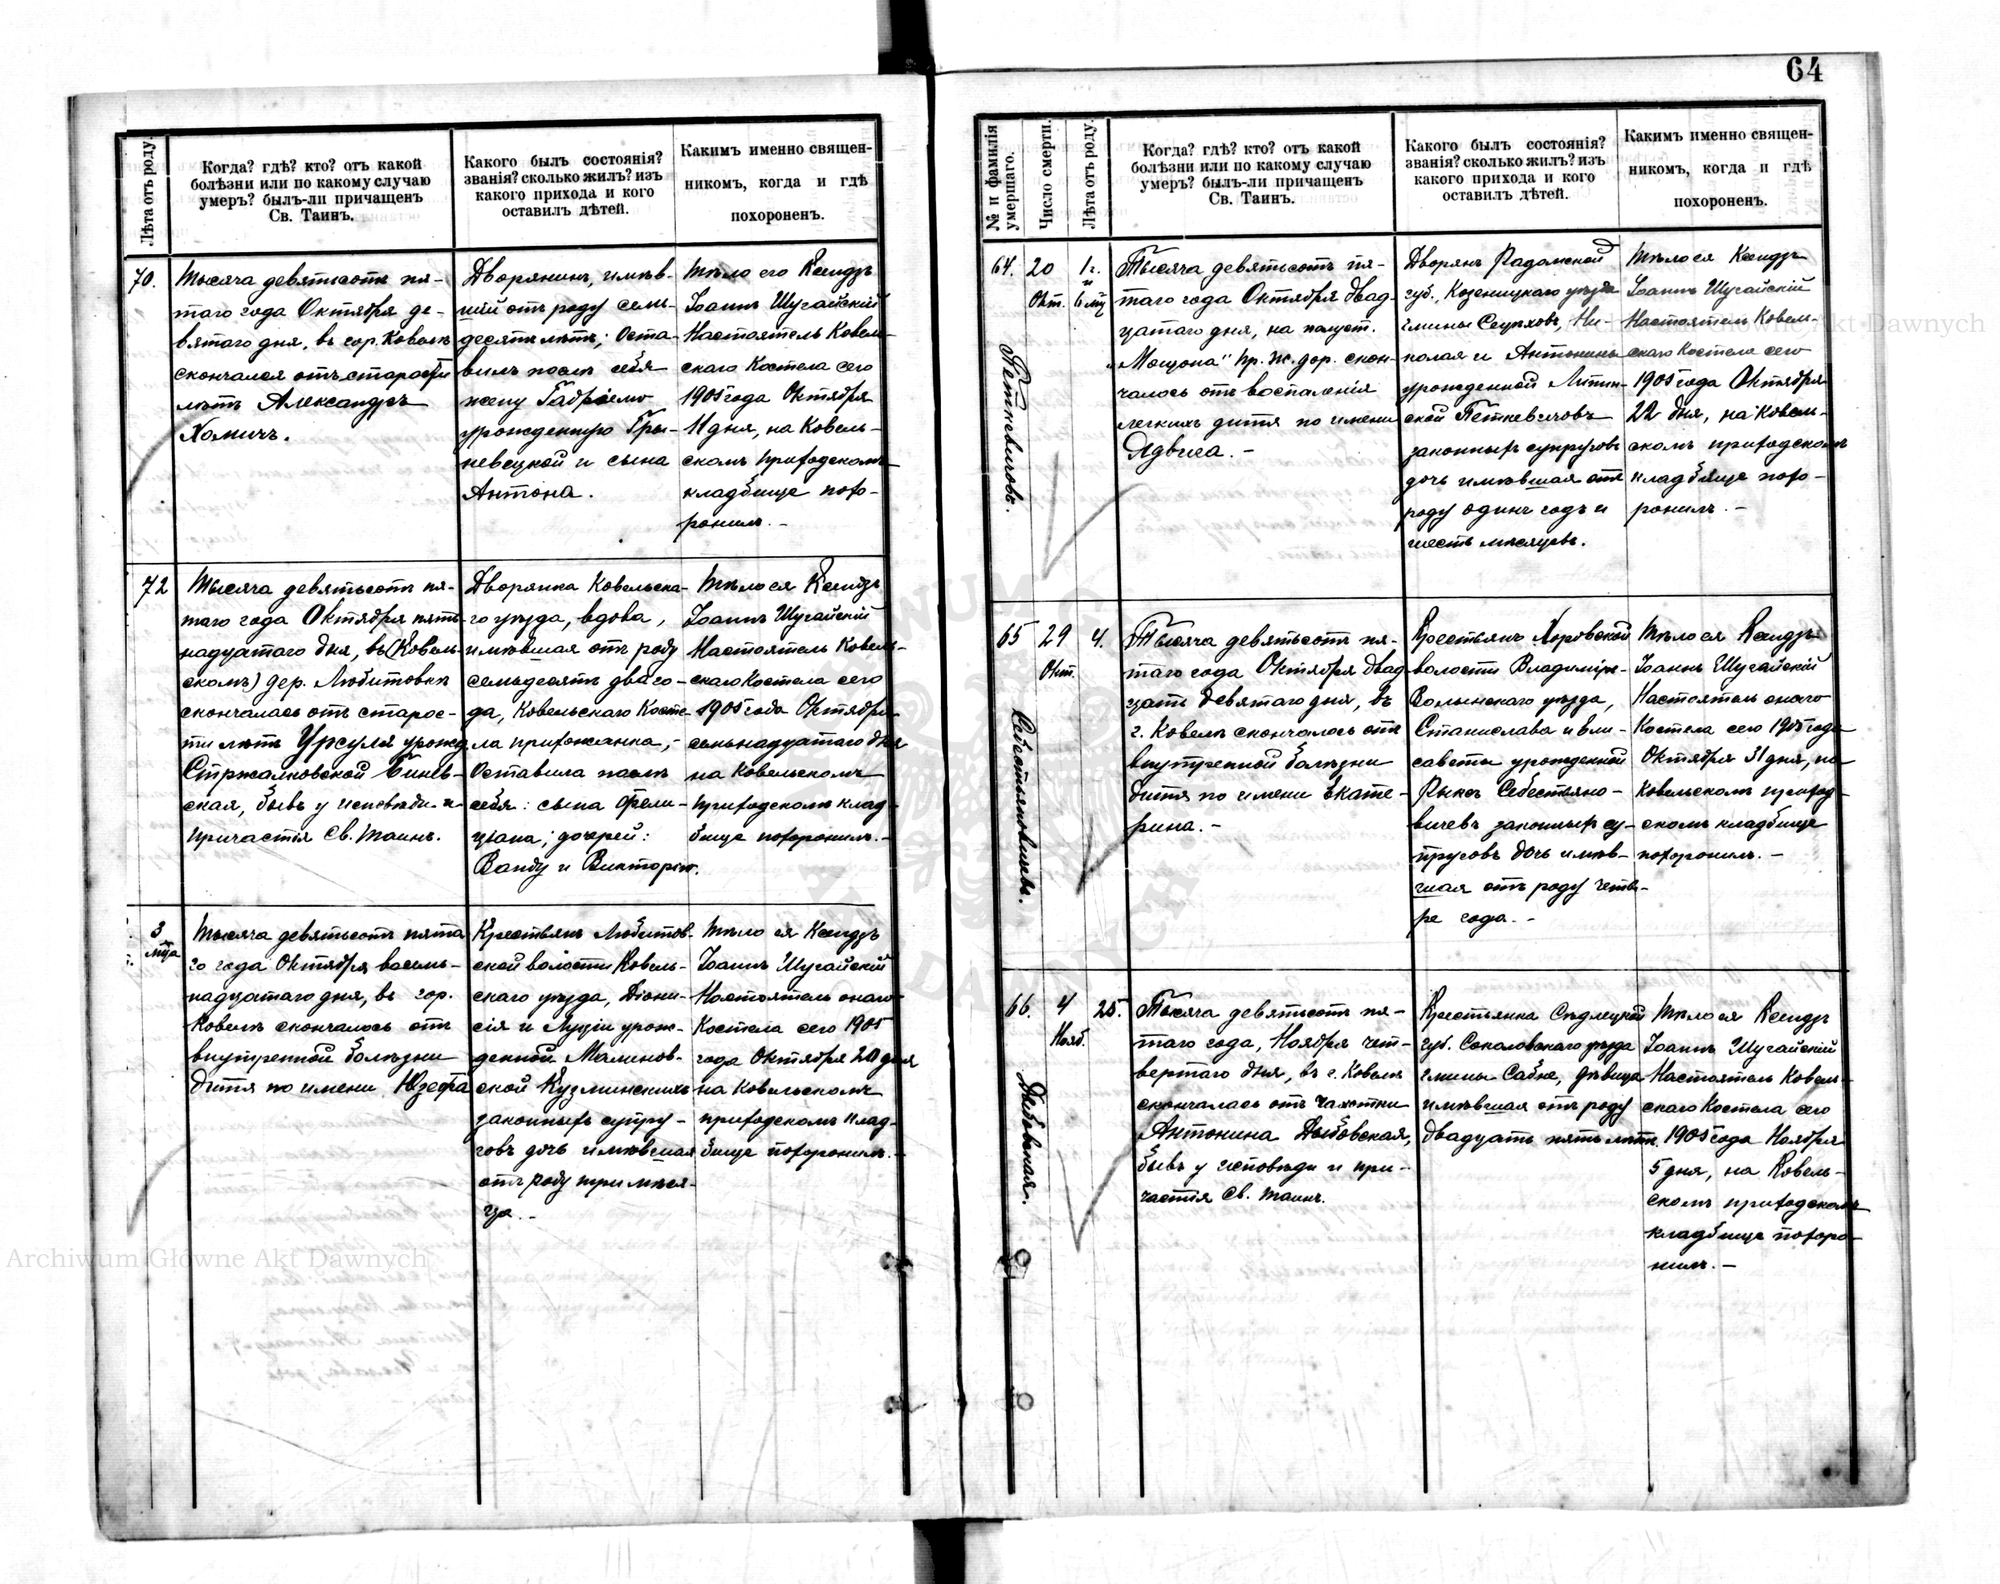 64
Лѣта отъ роду.
Когда? гдѣ? кто? отъ какой
болѣзни или по какому случаю
умеръ? былъ-ли причащенъ
Св. Таинъ.
Какого былъ состоянія?
званія? сколько жилъ? изъ
какого прихода и кого
оставилъ дѣтей.
Какимъ именно священ-
никомъ, когда и гдѣ
похороненъ.
70.
Тысяча девятьсотъ пя-
таго года Октября де-
вятаго дня, въ гор. Ковелѣ
скончался отъ старости
лѣтъ Александръ
Хомичъ.
Дворянинъ, имѣв-
шій отъ роду семь-
десятъ лѣтъ; Оста-
вилъ послѣ себя
жену Габріелю
урожденную Гры-
невецкой и сына
Антона.
Тѣло его Ксендзъ
Іоаннъ Шугайскій
Настоятель Ковель-
скаго Костела сего
1905 года Октября
11 дня, на Ковель-
скомъ приходскомъ
кладбище похо-
ронилъ. -
72
Тысяча девятьсотъ пя-
таго года Октября пят-
надцатаго дня, въ (Ковель-
скомъ) дер. Любитовкѣ
скончалась отъ старос-
ти лѣтъ Урсуля урожд
Стржалковской
ская, бывъ у исповѣди и
причастія Св. Таинъ.
Дворянка Ковельска-
го уѣзда, вдова,
имѣвшая отъ роду
семьдесятъ два го-
да, Ковельскаго Косте
ла прихожанка,-
Оставила послѣ
себя: сына Фели-
ціана; дочерей:
Ванду и Викторію.
Тѣло ея Ксендзъ
Іоаннъ Шугайскій
Настоятель Ковель-
скаго Костела сего
1905 года Октября
семьнадцатаго дня
на Ковельскомъ
приходскомъ клад-
бище похоронилъ. -
3
мѣсяца
Тысяча девятьсотъ пята
го года Октября восемь-
надцатаго дня, въ гор.
Ковелѣ скончалось отъ
внутренной болѣзни
дитя по имени Юзефа
Крестьянъ Любитов-
ской волости Ковель-
скаго уѣзда, Діони-
сія и Луціи урож-
денной Малинов-
ской Кузминскихъ
законныхъ супру-
говъ дочь имѣвшая
отъ роду три мѣся-
ца. -
Тѣло ея Ксендзъ
Іоаннъ Шугайскій
Настоятель онаго
Костела сего 1905
года Октября 20 дня
на Ковельскомъ
приходскомъ клад-
бище похоронилъ. -
№ и фамилія
умершаго.
Число смерти.
Лѣта отъ роду.
Когда? гдѣ? кто? отъ какой
болѣзни или по какому случаю
умеръ? былъ-ли причащенъ
Св. Таинъ.
Какого былъ состоянія?
званія? сколько жилъ? изъ
какого прихода и кого
оставилъ дѣтей.
Какимъ именно священ-
никомъ, когда и гдѣ
похороненъ.
64.
Петкевичовъ.
20
Окт.
1 г.
и
6 мц
Тысяча девятьсотъ пя-
таго года Октября двад-
цатаго дня, на полуст.
„Мощона" пр. ж. дор. скон-
чалось отъ воспаленія
легкихъ дитя по имени
Ядвига. -
Дворянъ Радомской
губ., Козеницкаго уѣзда
гмины Сецѣховъ, Ни-
колая и Антонины
урожденной Литин-
ской Петкевичовъ
законныхъ супруговъ
дочь имѣвшая отъ
роду одинъ годъ и
шесть мѣсяцевъ.
Тѣло ея Ксендзъ
Іоаннъ Шугайскій
Настоятель Ковель-
скаго Костела сего
1905 года Октября
22 дня, на Ковель-
скомъ приходскомъ
кладбище похо-
ронилъ. -
65
29
Окт.
4.
Тысяча девятьсотъ пя-
таго года Октября двад
цать девятаго дня, въ
г. Ковелѣ скончалось отъ
внутренной болѣзни
дитя по имени Екате-
рина. -
Крестьянъ Хоровской
волости Владимірж-
Волынскаго уѣзда,
Станислава и Ели-
саветы урожденной
Рыксъ Себестьяно-
вичевъ законныхъ су-
пруговъ дочь имѣв-
шая отъ роду четы-
ре года. -
Тѣло ея Ксендзъ
Іоаннъ Шугайскій
Настоятель онаго
Костела сего 1905 года
Октября 31 дня, на
Ковельскомъ приход-
скомъ кладбище
похоронилъ. -
66.
Дыбовская.
4
Нояб.
25.
Тысяча девятьсотъ пя-
таго года, Ноября чет-
вертаго дня, въ г. Ковелѣ
скончалась отъ чахотки
Антонина Дыбовская,
бывъ у исповѣди и при-
частія Св. Таинъ.
Крестьянка Сѣдлецкой
губ. Соколовскаго уѣзда
гмины Сабне, дѣвица
имѣвшая отъ роду
двадцать пять лѣтъ.
Тѣло ея Ксендзъ
Іоаннъ Шугайскій
Настоятель Ковель-
скаго Костела сего
1905 года Ноября
5 дня, на Ковель-
скомъ приходскомъ
кладбище похоро-
нилъ. -
Archiwum Główne Akt Dawnych
Akt Dawnych